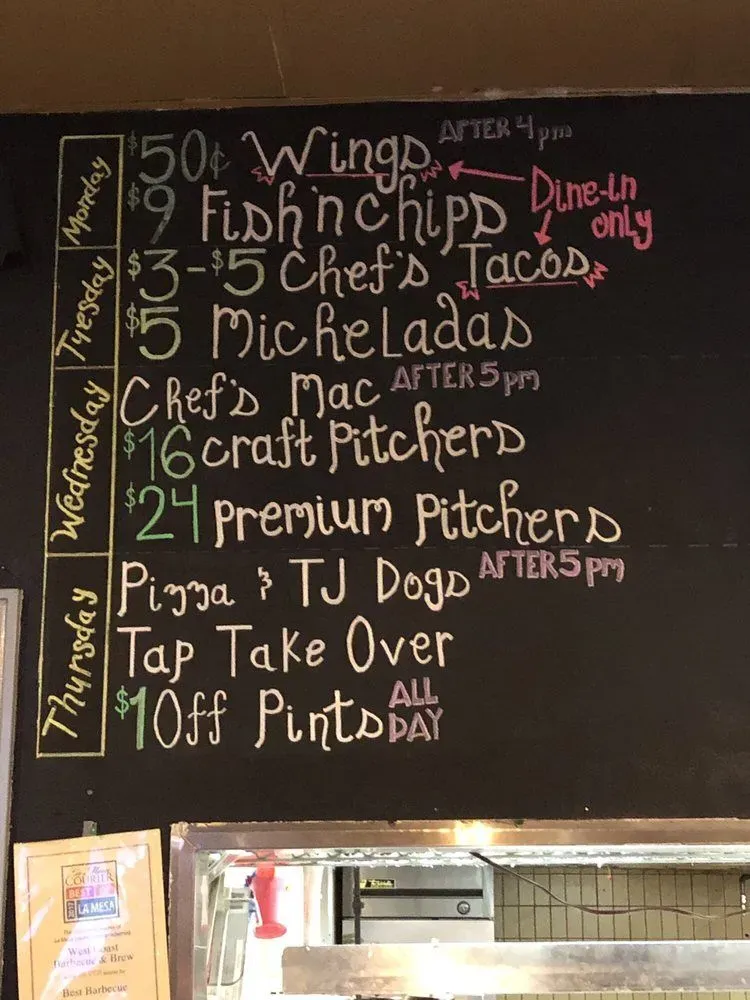 Monday
$50¢ Wings AFTER 4pm
$9 Fish'n chips
Dine-in
only
Tuesday
$3-$5 Chef's Tacos
$5 Micheladas
Wednesday
Chef's Mac AFTER 5pm
$16 craft Pitchers
$24 premium Pitchers
Thursday
Pizza & TJ Dogs AFTER 5pm
Tap Take Over
$1 Off Pints ALL DAY
COURIER
BEST OF
2017 LA MESA
West Coast
Barbecue & Brew
Best Barbecue